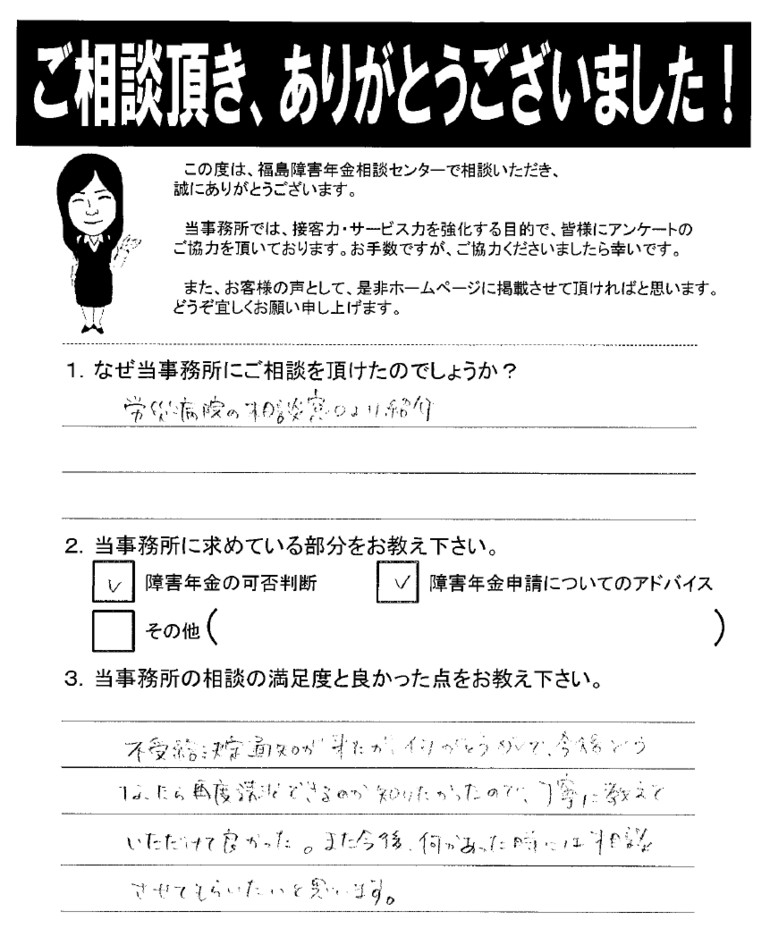 ご相談頂き、ありがとうございました!
この度は、福島障害年金相談センターで相談いただき、
誠にありがとうございます。
当事務所では、接客力・サービス力を強化する目的で、皆様にアンケートの
ご協力を頂いております。お手数ですが、ご協力くださいましたら幸いです。
また、お客様の声として、是非ホームページに掲載させて頂ければと思います。
どうぞ宜しくお願い申し上げます。
1. なぜ当事務所にご相談を頂けたのでしょうか?
労災病院の相談窓口より紹介
2. 当事務所に求めている部分をお教え下さい。
☑ 障害年金の可否判断 ☑ 障害年金申請についてのアドバイス
☐ その他( )
3. 当事務所の相談の満足度と良かった点をお教え下さい。
不受給決定通知が来たが、今後どう
なったら再度請求できるのか知りたかったので、丁寧に教えて
いただけて良かった。また今後、何かあった時には相談
させてもらいたいと思います。